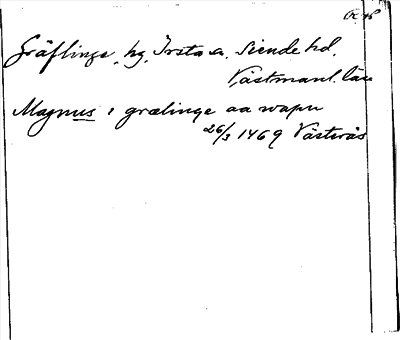 Gräflinge, hg, Irsta sn, Siende hd,
Västmanl. län
Magnus i grælinge aa wapn
26/3 1469 Västerås